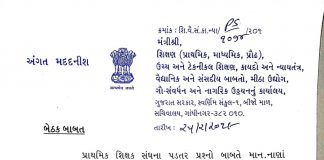 અંગત મદદનીશ
ક્રમાંક : શિ.વૈ.સં.કા.ના/
મંત્રીશ્રી,
શિક્ષણ (પ્રાથમિક, માધ્યમિક, પ્રૌઢ),
ઉચ્ચ અને ટેકનીકલ શિક્ષણ, કાયદો અને ન્યાયતંત્ર,
વૈધાનિક અને સંસદીય બાબતો, મીઠા ઉદ્યોગ,
ગૌ-સંવર્ધન અને નાગરિક ઉડ્ડયનનું કાર્યાલય,
ગુજરાત સરકાર, સ્વર્ણિમ સંકુલ-૧, બીજો માળ,
સચિવાલય, ગાંધીનગર-૩૮૨ ૦૧૦.
તારીખ :
બેઠક બાબત
પ્રાથમિક શિક્ષક સંઘના પડતર પ્રશ્નો બાબતે માન.નાણાં